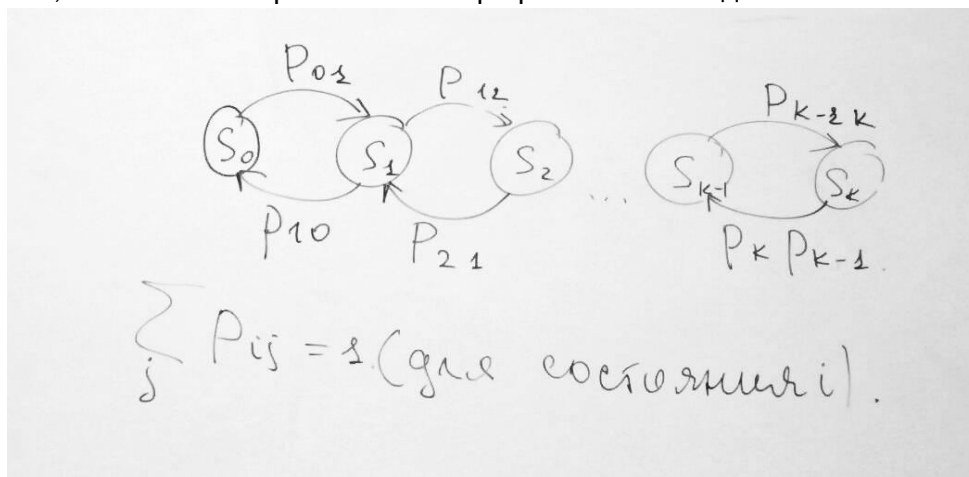 P01 P12 PK-1 K
S0 S1 S2 ... SK-1 SK
P10 P21 PK PK-1
∑j Pij = 1 (для состояния i).